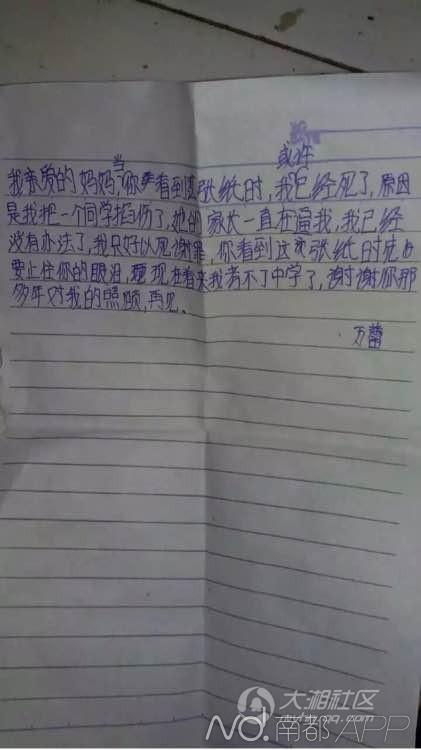 我亲爱的妈妈,当你看到这张纸时,我或许已经死了,原因
是我把一个同学掐伤了,她的家长一直在逼我,我已经
没有办法了,我只好以死谢罪,你看到这张纸的时
要止住你的眼泪,现在看来我考不了中学了,谢谢你那
多年对我的照顾,再见。
万
大湘社区
NO.南都APP